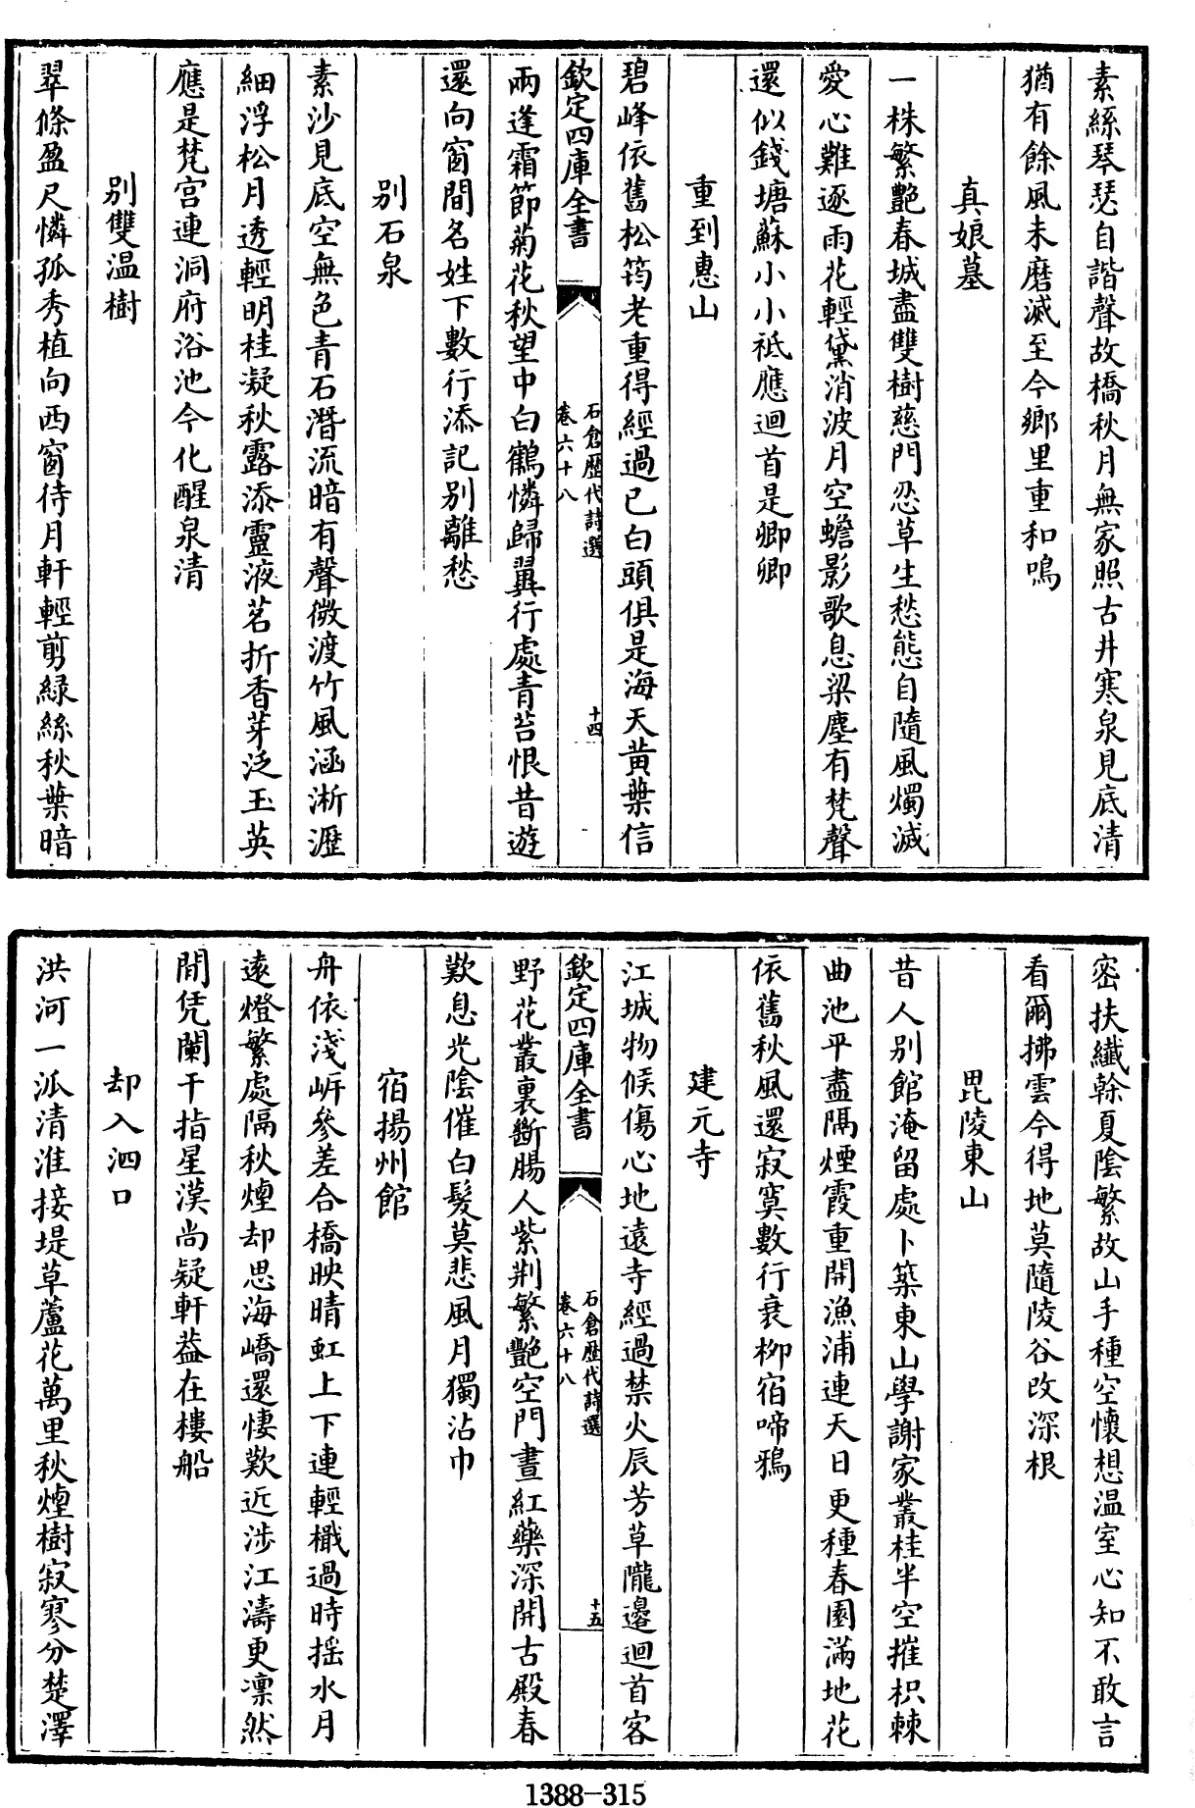 素絲琴瑟自諧聲故橋秋月無家照古井寒泉見底清
猶有餘風未磨滅至今鄉里重和鳴
真娘墓
一株繁艷春城盡雙樹慈門忍草生愁態自隨風燭滅
愛心難逐雨花輕黛消波月空蟾影歌息梁塵有梵聲
還似錢塘蘇小小祗應迴首是卿卿
重到惠山
碧峰依舊松筠老重得經過已白頭俱是海天黃葉信
欽定四庫全書
石倉歷代詩選
卷六十八
十四
兩逢霜節菊花秋望中白鶴憐歸翼行處青苔恨昔遊
還向窗間名姓下數行添記别離愁
别石泉
素沙見底空無色青石潛流暗有聲微渡竹風涵淅瀝
細浮松月透輕明桂凝秋露添靈液茗折香芽泛玉英
應是梵宫連洞府浴池今化醒泉清
别雙温樹
翠條盈尺憐孤秀植向西窗待月軒輕剪緑絲秋葉暗
密扶纎幹夏陰繁故山手種空懷想温室心知不敢言
看爾拂雲今得地莫隨陵谷改深根
毘陵東山
昔人别館淹留處卜築東山學謝家叢桂半空摧枳棘
曲池平盡隔煙霞重開漁浦連天日更種春園滿地花
依舊秋風還寂寞數行衰柳宿啼鴉
建元寺
江城物候傷心地逺寺經過禁火辰芳草隴邉迴首客
欽定四庫全書
石倉歷代詩選
卷六十八
十五
野花叢裏斷腸人紫荆繁艷空門晝紅藥深開古殿春
歎息光陰催白髮莫悲風月獨沾巾
宿揚州館
舟依淺岍參差合橋映晴虹上下連輕檝過時摇水月
遠燈繁處隔秋煙却思海嶠還悽歎近涉江濤更凜然
閒凭闌干指星漢尚疑軒葢在樓船
却入泗口
洪河一派清淮接堤草蘆花萬里秋煙樹寂寥分楚澤
1388-315